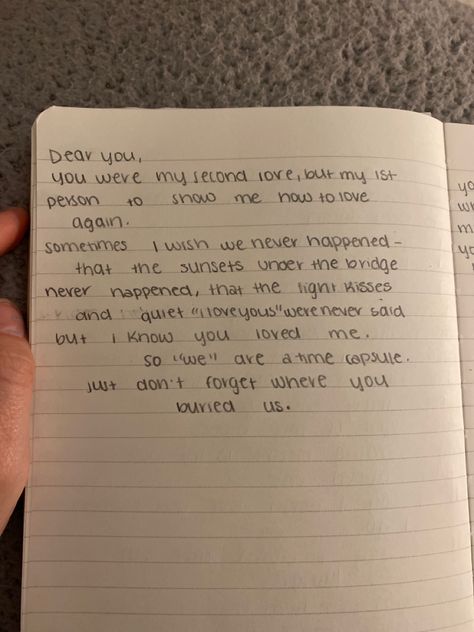 Dear you,
you were my second love, but my 1st
person to show me how to love
again.
sometimes I wish we never happened -
that the sunsets under the bridge
never happened, that the light kisses
and quiet "iloveyous" were never said
but I know you loved me.
so "we" are a time capsule.
just don't forget where you
buried us.
yo
w
m
yo